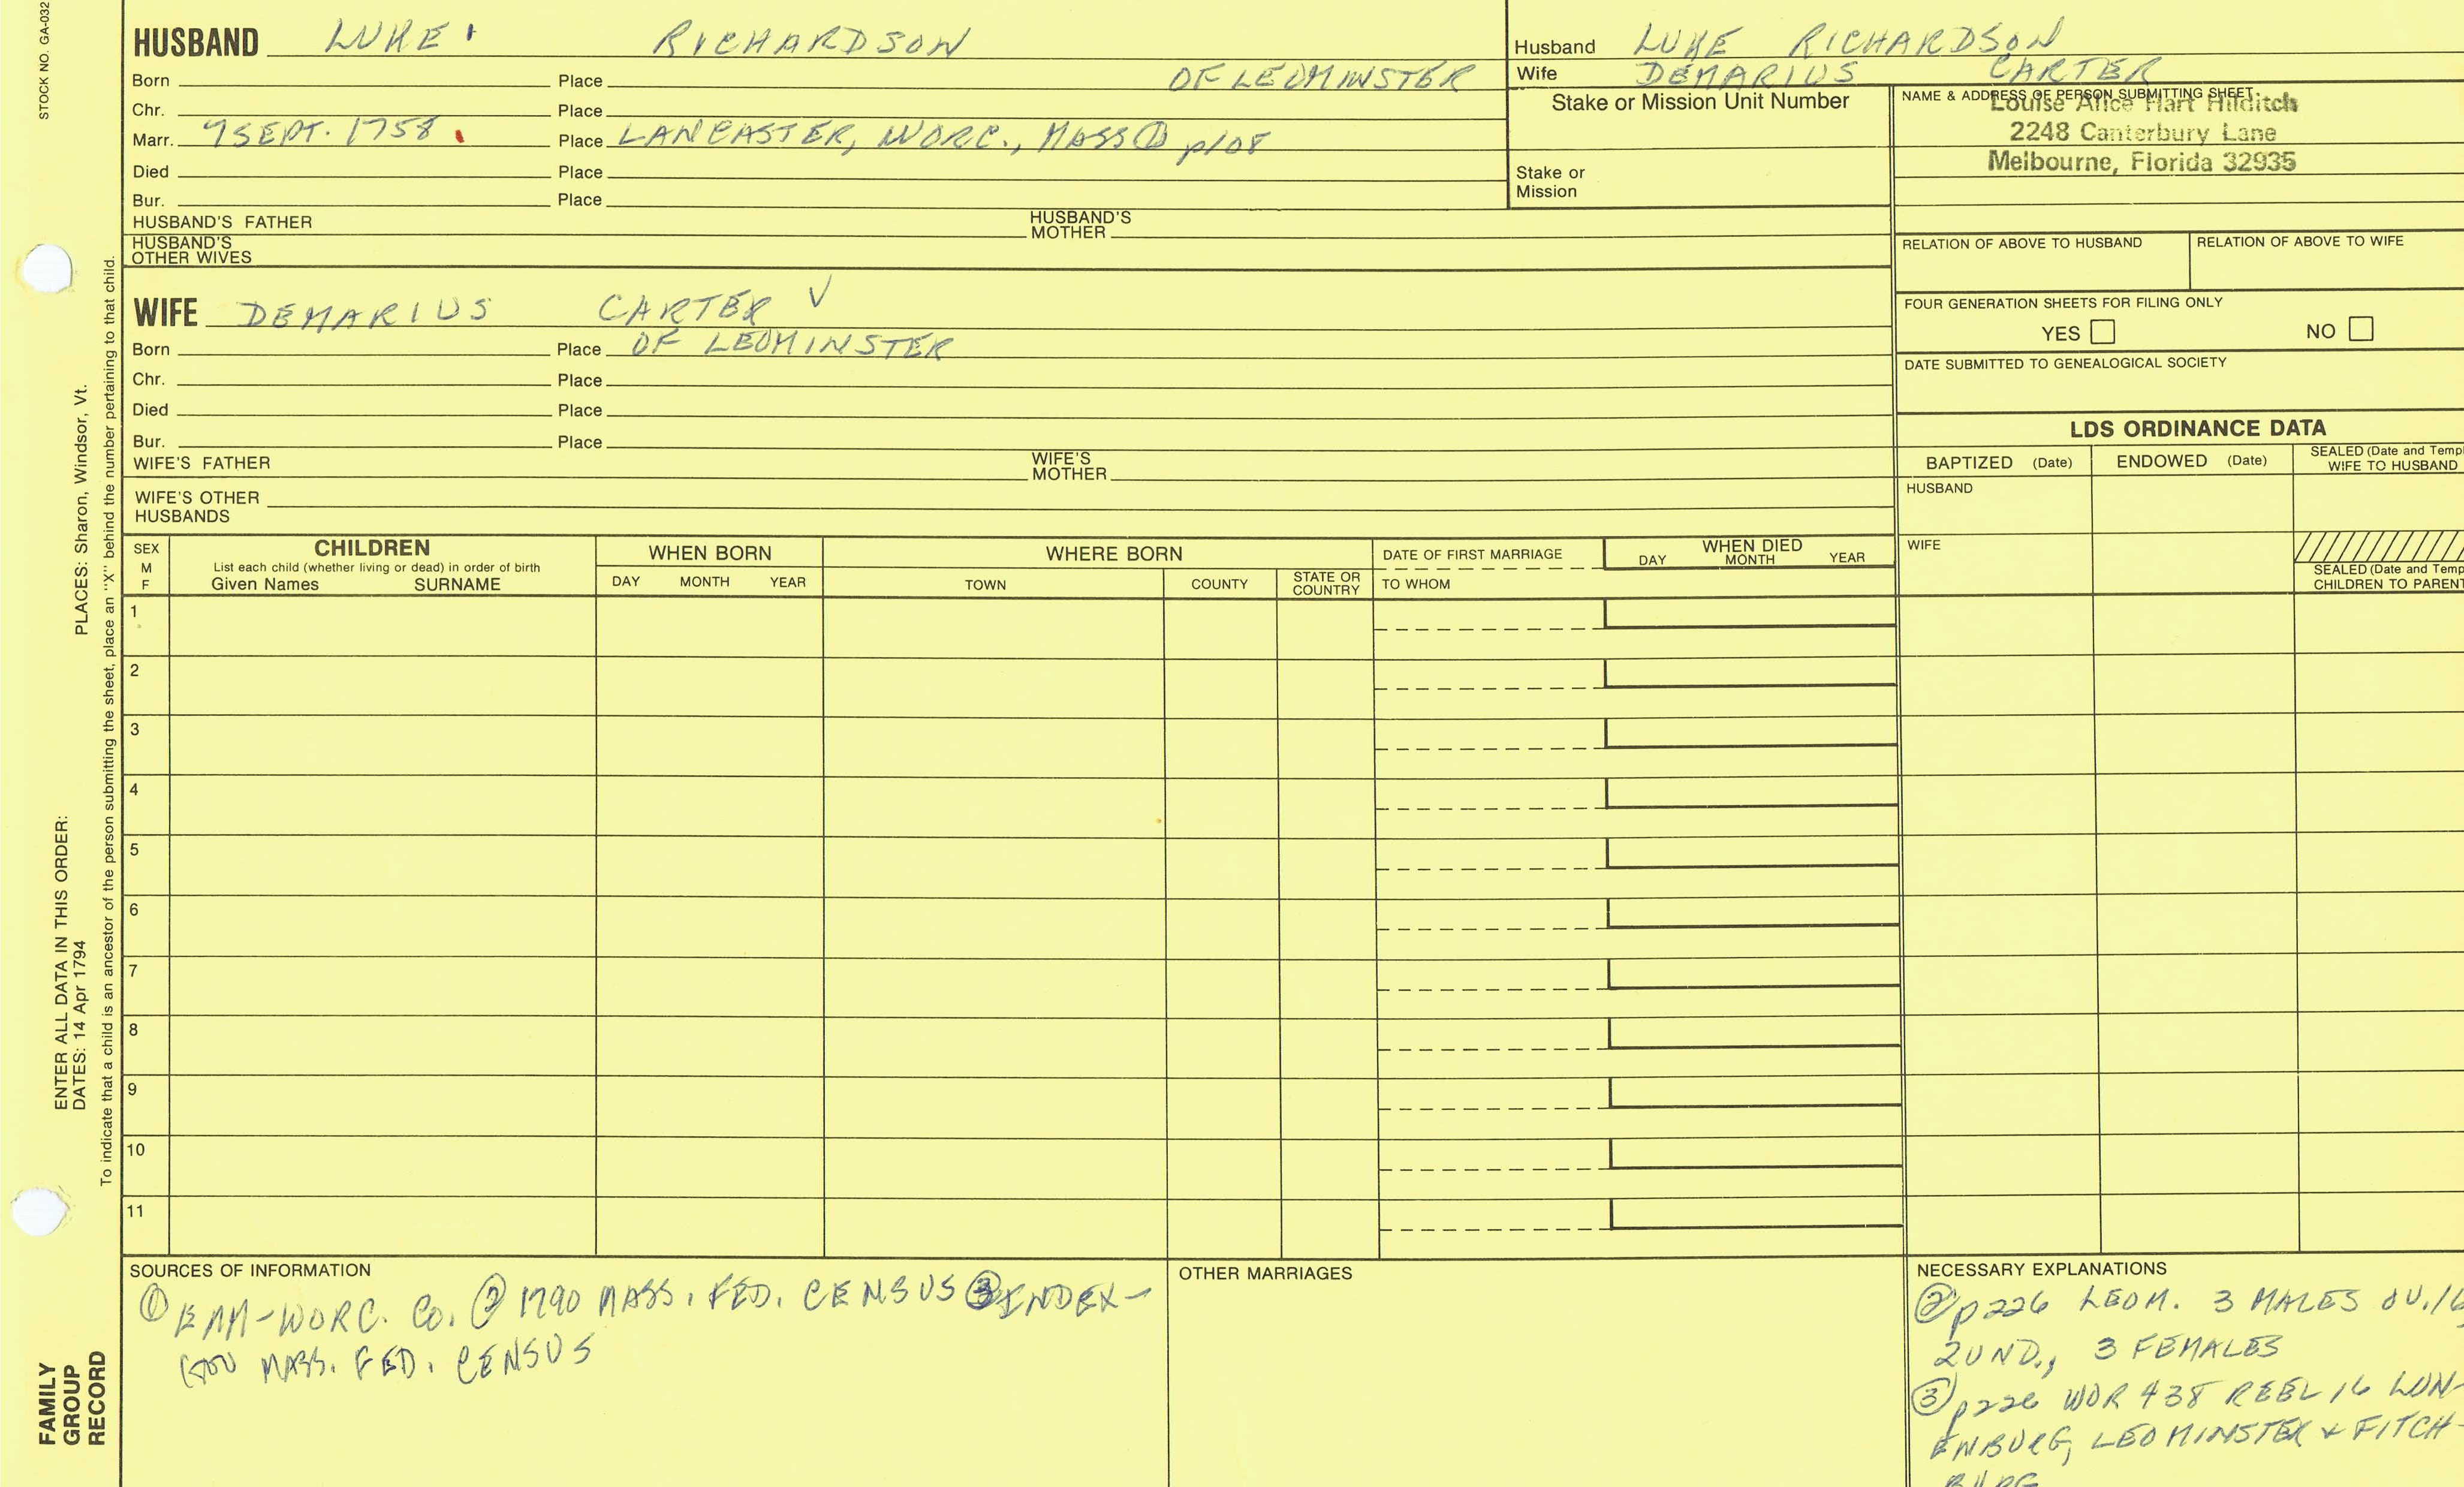 STOCK NO. GA-032
HUSBAND LUKE RICHARDSON
Born Place OF LEOMINSTER
Chr. Place
Marr. 7 SEPT. 1758 Place LANCASTER, WORC., MASS ① p108
Died Place
Bur. Place
HUSBAND'S FATHER HUSBAND'S MOTHER
HUSBAND'S OTHER WIVES
Husband LUKE RICHARDSON
Wife DEMARIUS CARTER
Stake or Mission Unit Number
Stake or Mission
NAME & ADDRESS OF PERSON SUBMITTING SHEET
Louise Alice Hart Hilditch
2248 Canterbury Lane
Melbourne, Florida 32935
RELATION OF ABOVE TO HUSBAND RELATION OF ABOVE TO WIFE
FOUR GENERATION SHEETS FOR FILING ONLY
YES NO
DATE SUBMITTED TO GENEALOGICAL SOCIETY
WIFE DEMARIUS CARTER V
Born Place OF LEOMINSTER
Chr. Place
Died Place
Bur. Place
WIFE'S FATHER WIFE'S MOTHER
WIFE'S OTHER HUSBANDS
LDS ORDINANCE DATA
BAPTIZED (Date) ENDOWED (Date) SEALED (Date and Templ
WIFE TO HUSBAND
HUSBAND
WIFE
SEALED (Date and Temp
CHILDREN TO PARENT
SEX M F
CHILDREN
List each child (whether living or dead) in order of birth
Given Names SURNAME
WHEN BORN
DAY MONTH YEAR
WHERE BORN
TOWN COUNTY STATE OR COUNTRY
DATE OF FIRST MARRIAGE
TO WHOM
WHEN DIED
DAY MONTH YEAR
1
2
3
4
5
6
7
8
9
10
11
SOURCES OF INFORMATION
① EAM-WORC. CO. ② 1790 MASS. FED. CENSUS ③ INDEX-
MASS. FED. CENSUS
OTHER MARRIAGES
NECESSARY EXPLANATIONS
② p226 LEOM. 3 MALES OV. 16,
2 UND., 3 FEMALES
③ p226 WOR 438 REEL 16 LUN-
ENBURG, LEOMINSTER & FITCH-
BURG
PLACES: Sharon, Windsor, Vt.
ENTER ALL DATA IN THIS ORDER:
DATES: 14 Apr 1794
To indicate that a child is an ancestor of the person submitting the sheet, place an "X" behind the number pertaining to that child.
FAMILY
GROUP
RECORD